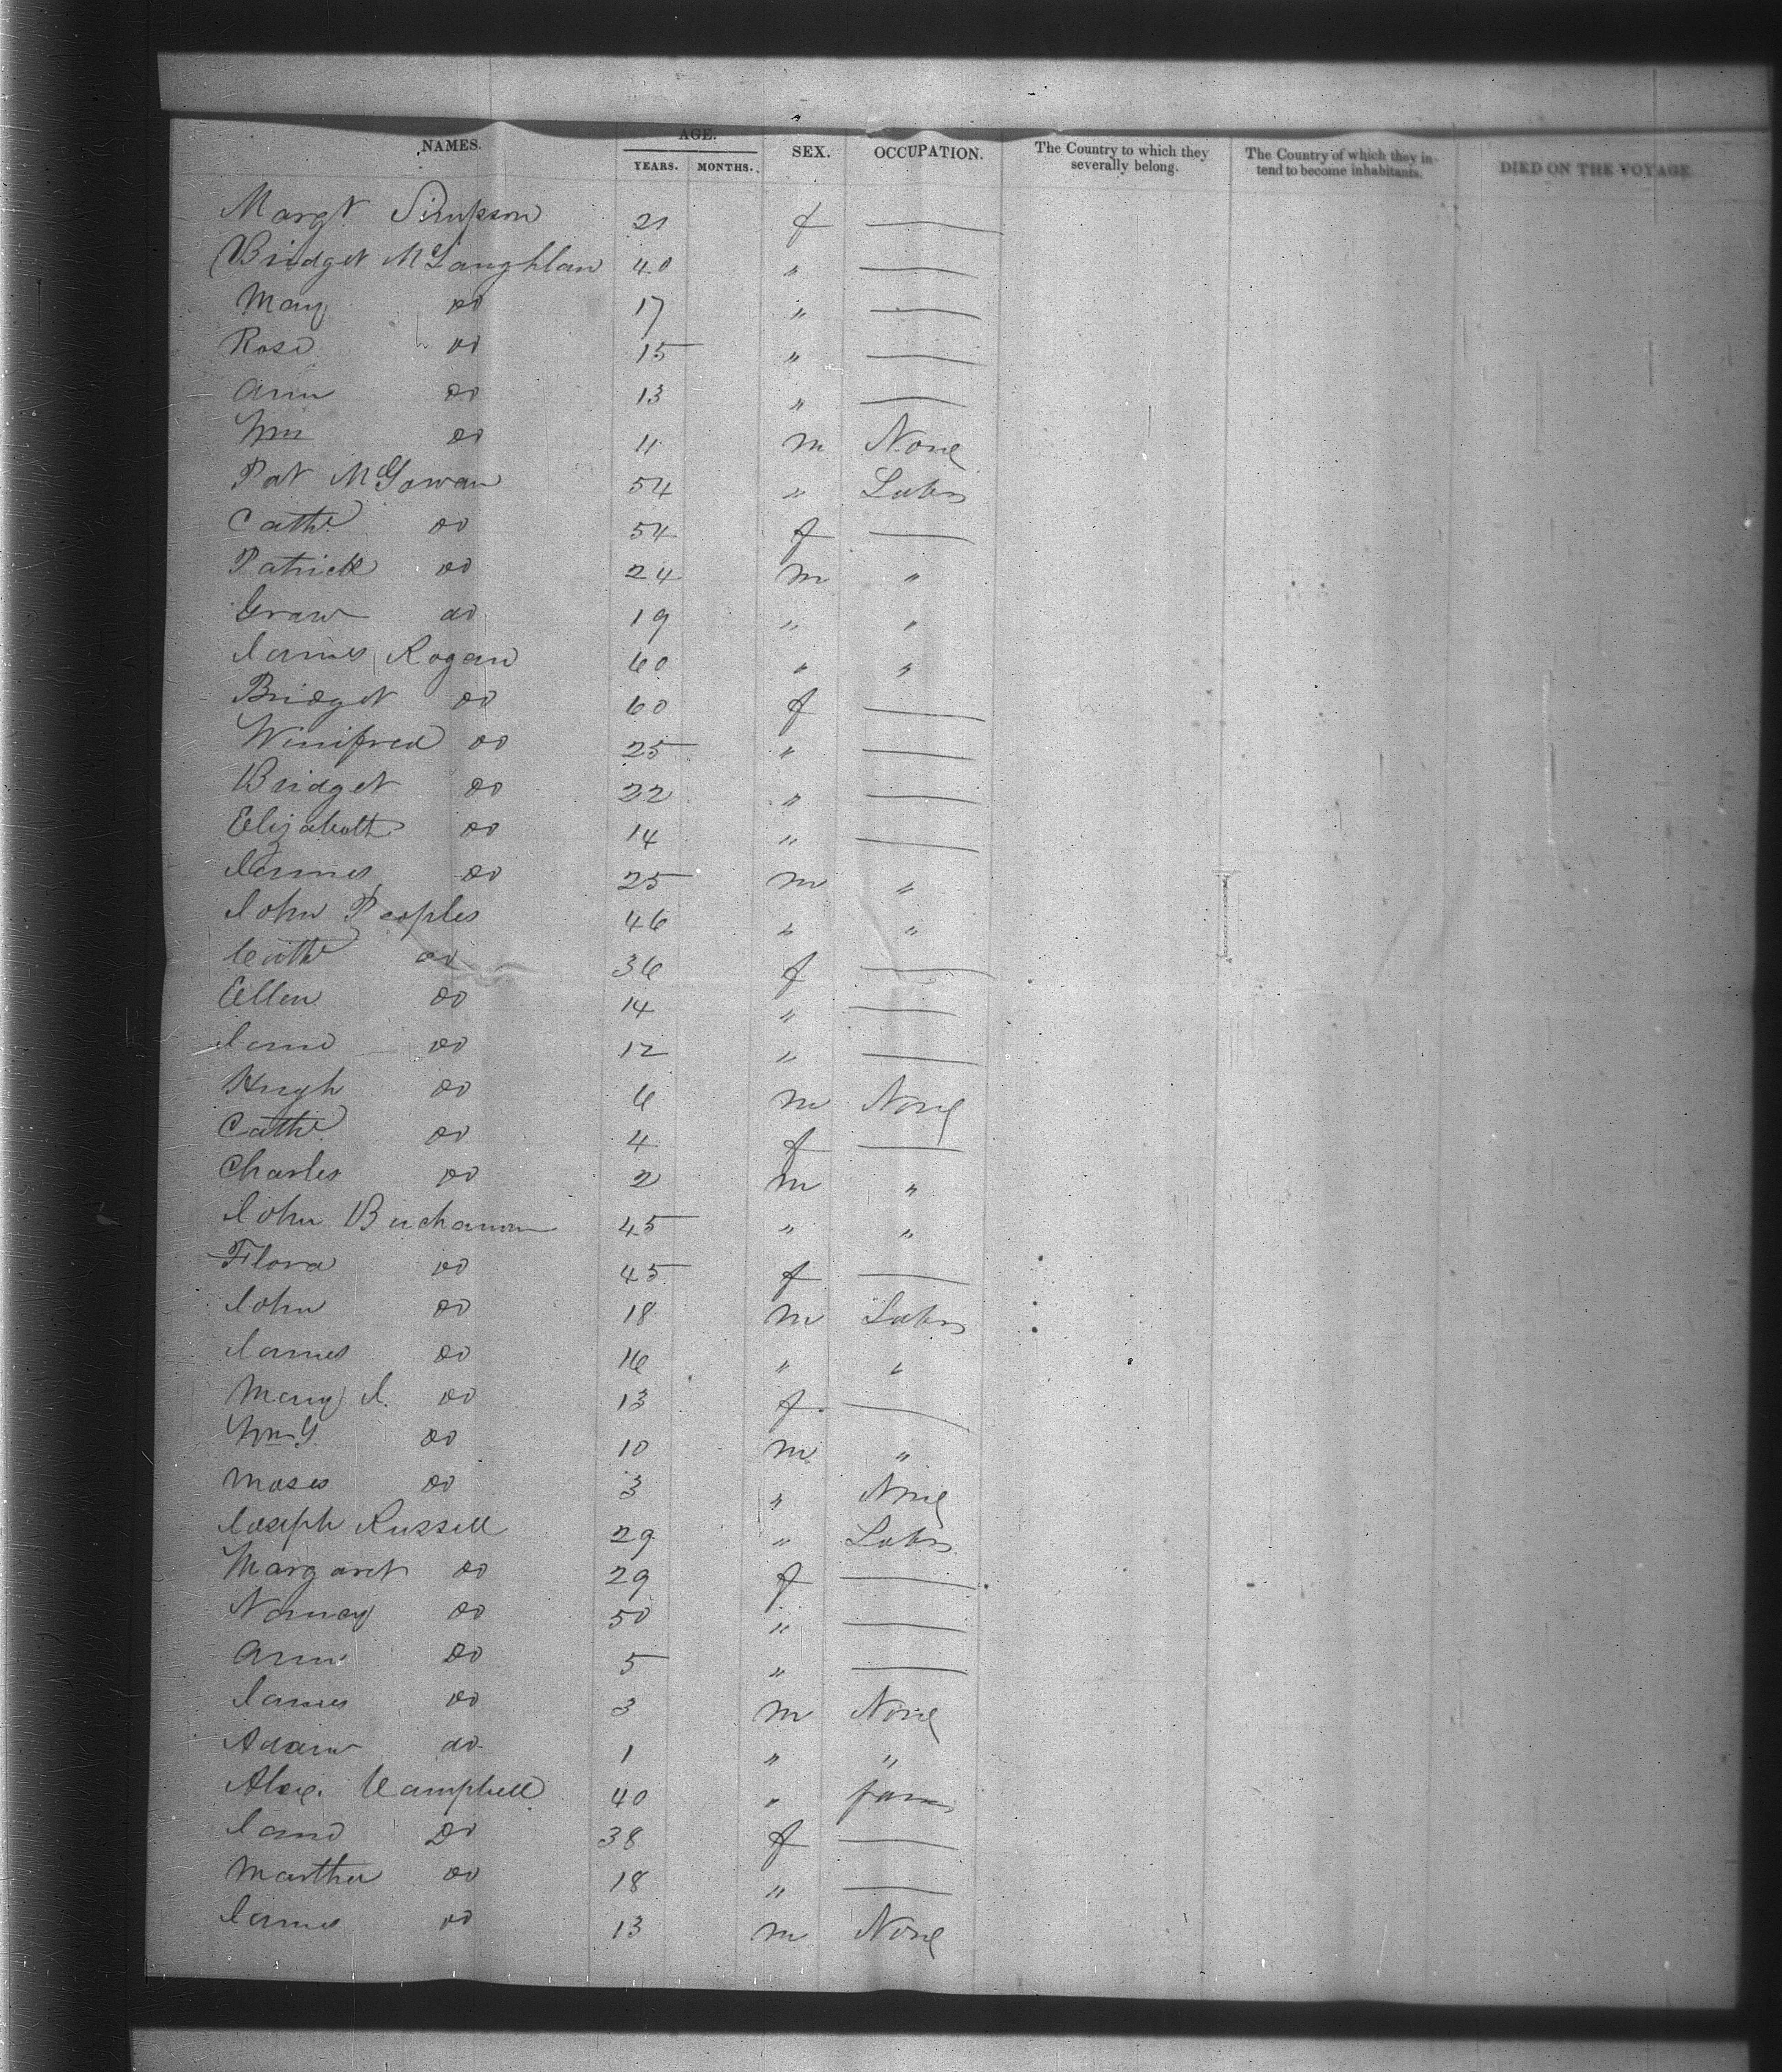 NAMES. AGE. SEX. OCCUPATION. The Country to which they severally belong. The Country of which they intend to become inhabitants. DIED ON THE VOYAGE
YEARS. MONTHS.
Margt. Simpson 21 f —
Bridget McLaughlan 40 " —
Mary do 17 " —
Rose do 15 " —
Ann do 13 " —
Wm do 11 m None
Pat McGowan 54 " Labr
Cathe do 54 f —
Patrick do 24 m "
do 19 " "
James Rogan 60 " "
Bridget do 60 f —
Winifred do 25 " —
Bridget do 22 " —
Elizabeth do 14 " —
James do 25 m "
John Peoples 46 " "
Cathe do 36 f —
Ellen do 14 " —
Jane do 12 " —
Hugh do 6 m None
Cathe do 4 f —
Charles do 2 m "
John Buchanan 45 " "
Flora do 45 f —
John do 18 m Labr
James do 16 " "
Mary J. do 13 f —
Wm G. do 10 m "
Moses do 3 " None
Joseph Russell 29 " Labr
Margaret do 29 f —
Nancy do 50 " —
Ann do 5 " —
James do 3 m None
Adam do 1 " "
Alex. Campbell 40 " farm
Jane Do 38 f —
Martha do 18 " —
James do 13 m None